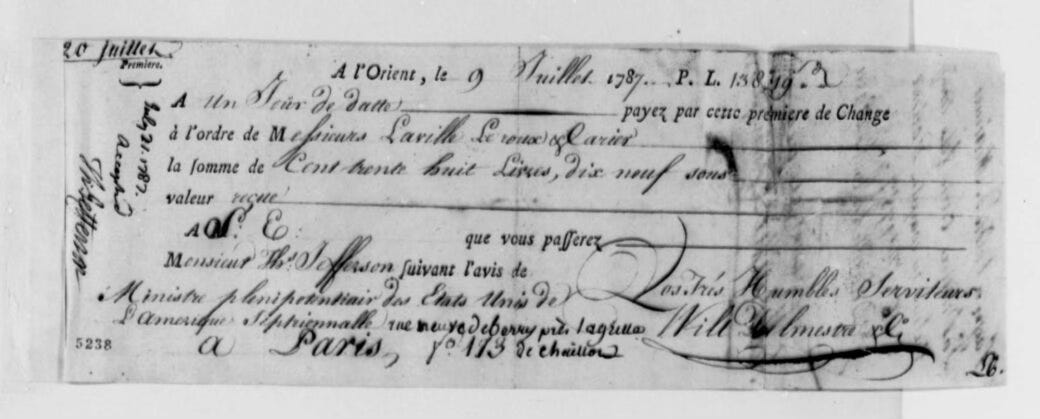 20 Juillet
Premiere.
A l'Orient, le 9 Juillet 1787. P. L. 138.,19.ˢ
A Un Jour de datte payez par cette première de Change
à l'ordre de Messieurs Laville Le roux & Carier
la somme de Cent trente huit Livres, dix neuf sous
valeur reçue
A S. E: que vous passerez
Monsieur Thˢ. Jefferson suivant l'avis de
Ministre plenipotentiair des Etats Unis de Vos Trés Humbles Serviteurs
L'amerique Septrionnalle rue neuve de berry près la grille Will
a Paris, Nº 113 de chaillot
5238
July 21. 1787.
Accepted
Th: Jefferson